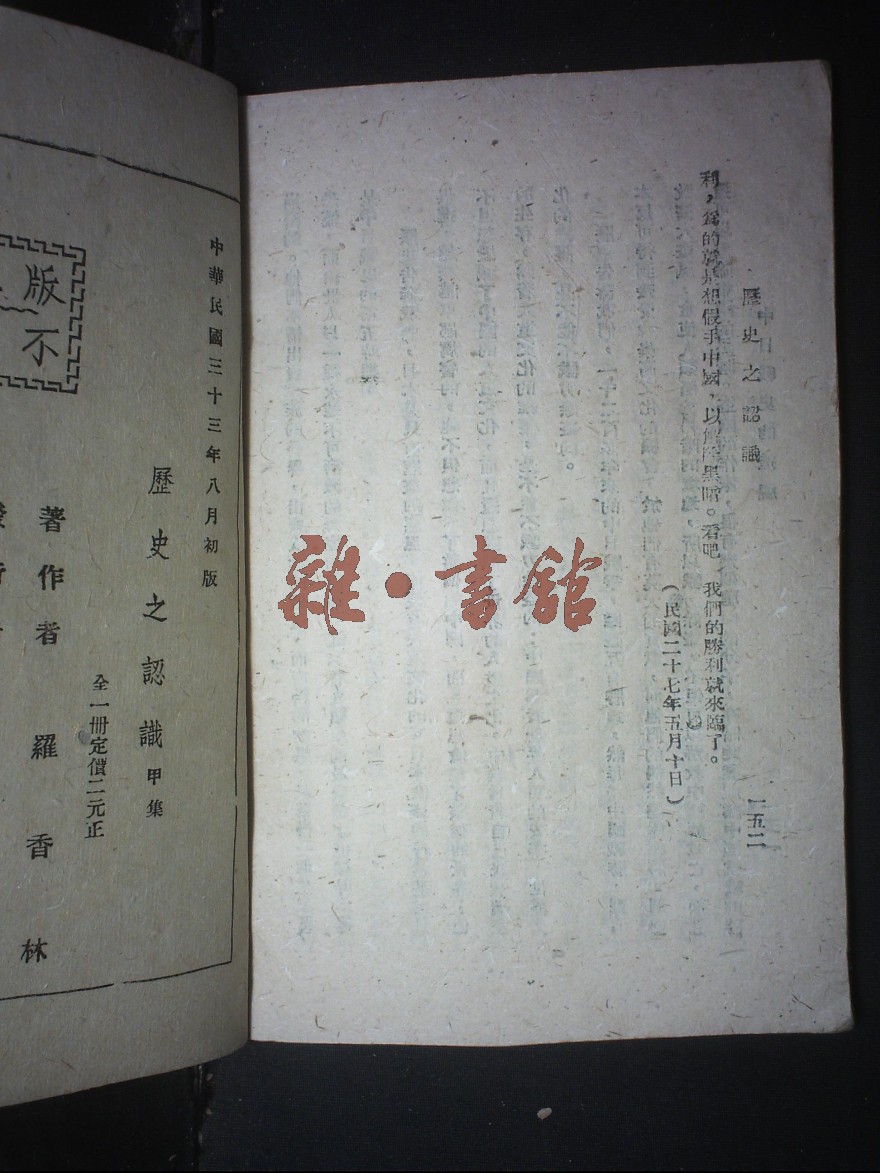 歷史之認識
一五二
利，爲的就是想假手中國，以解除黑暗。看吧　我們的勝利就來臨了。
（民國二十七年五月十日）
中華民國三十三年八月初版
歷史之認識 甲集
全一冊定價二元正
著作者 羅香林
版
不
雜·書館